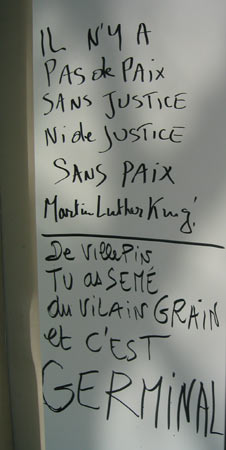 IL N'Y A
PAS de PAIX
SANS JUSTICE
Ni de JUSTICE
SANS PAIX
Martin Luther King!
De VillePiN
TU as SEMÉ
du ViLAiN GRAIN
et C'EST
GERMINAL